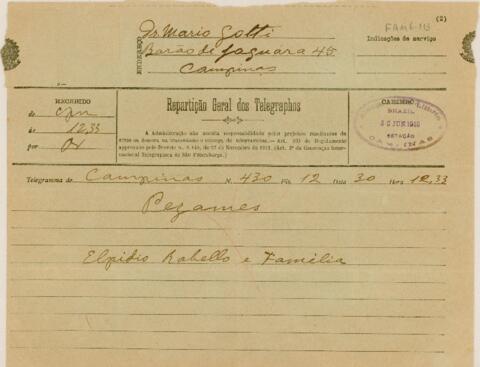 (2)
ENDEREÇO
Dr Mario Gatti
Barão de Jaguara 45
Campinas
Indicações de serviço
FAM6-113
RECEBIDO
de Cpn
ás 12,33
por
Repartição Geral dos Telegraphos
A Administração não aceita responsabilidade pelos prejuizos resultantes de
erros ou demora na transmissão e entrega de telegrammas.—Art. do Regulamento
approvado pelo Decreto n. 9.148, de 27 de Novembro de 1911. (Art. 3º da Convenção Inter-
nacional Telegraphica de São Petersburgo.)
CARIMBO
BRAZIL
30 JUN 1916
ESTAÇÃO
CAMPINAS
Telegramma de Campinas N. 430 Pls 12 Data 30 Hora 12,33
Pezames
Elpidio Rabello e Familia